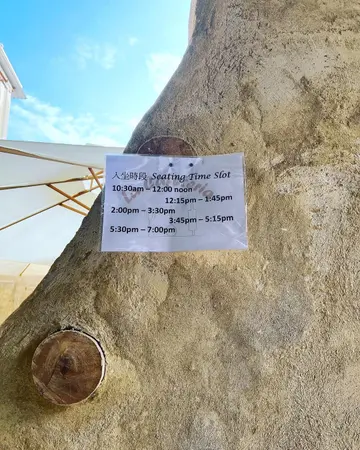 入坐時段 Seating Time Slot
10:30am – 12:00 noon
12:15pm – 1:45pm
2:00pm – 3:30pm
3:45pm – 5:15pm
5:30pm – 7:00pm